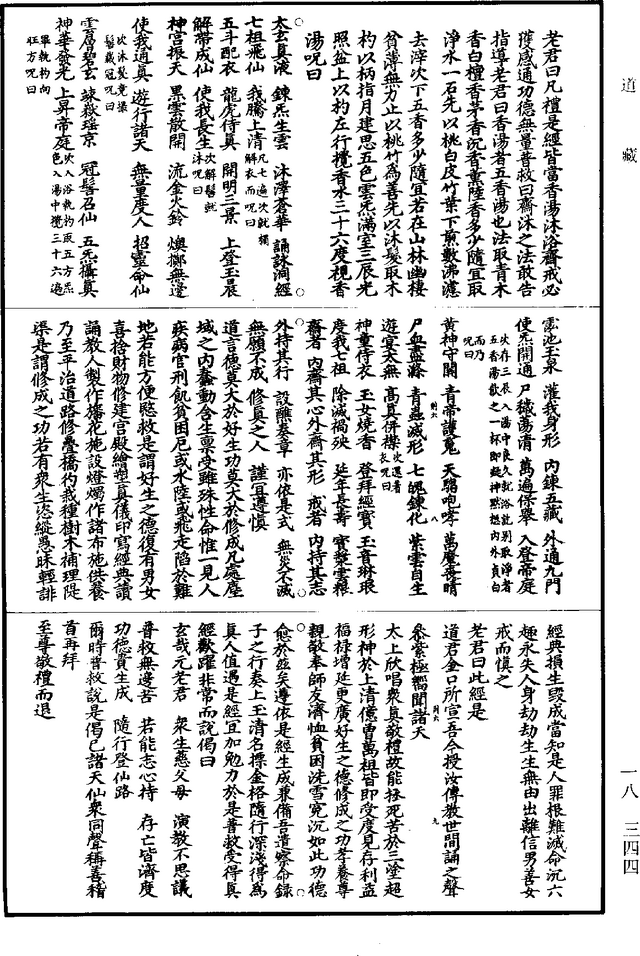 道藏
老君曰凡禮是經皆當香湯沐浴齋戒必
獲感通功德無量普救曰齋沐之法敢告
指導老君曰香湯者五香湯也法取青木
香白檀香茅香沉香薰陸香多少隨宜取
淨水一石先以桃白皮竹葉下煎數沸濾
去滓次下五香多少隨宜若在山林幽棲
貧薄無力止以桃竹為善先以沐髮取木
杓以柄指月建思五色雲炁滿室三辰光
照盆上以杓左行攪香水三十六度視香
湯呪曰
太玄真液 鍊炁生雲 沐澤蒼華 誦詠洞經
七祖飛仙 我騰上清 凡七遍次就櫚解衣而呪曰
五斗配衣 龍虎侍真 開明三景 上登玉晨
解帶成仙 使我長生 次解髻就沐呪曰
神宮振天 黑雲散開 流金火鈴 煥擲無邊
使我通真 遊行諸天 無量度人 招靈命仙
次沐髮竟櫛髻戴冠呪曰
雲層碧玄 竦嶽瑶京 冠髻召仙 五炁攝真
神華發光 上昇帝庭 次入浴執杓取五方炁色入湯中攪三十六遍
畢執杓向旺方呪曰
雲池玉泉 灌我身形 內鍊五藏 外通九門
使炁開通 尸穢蕩清 萬遍保舉 入登帝庭
次存三辰入湯中良久就浴訖別取淨者五香湯飲之一杯即凝神默想內外貞白而乃呪曰
黃神守關 青帝護魂 天駱咆哮 萬魔喪精
尸血盡滌 青蟲滅形 七魄鍊化 紫雲自生
遊宴太無 高真併襟 次還著衣呪曰
神童侍衣 玉女燒香 登拜經寶 玉音琳琅
度我七祖 除滅禍殃 延年長壽 實變雲糧
齋者內齋其心外齋其形 戒者內持其志
外持其行 設醮奏章 亦依是式 無災不滅
無願不成 修真之人 謹宜遵慎
道言德莫大於好生功莫大於修成凡處塵
域之內蠢動含生稟受雖殊性命惟一見人
疾病官刑飢貧困厄或水陸或飛走陷於難
地若能方便愍救是謂好生之德復有男女
喜捨財物修建宮殿繪塑真儀印寫經典讀
誦教人製作旛花施設燈燭作諸布施供養
乃至平治道路修疊橋彴栽種樹木補理隄
渠是謂修成之功若有衆生恣縱愚昧輕誹
經典損生毀成當知是人罪根難滅命沉六
趣永失人身劫劫生生無由出離信男善女
戒而慎之
老君曰此經是
道君金口所宣吾今授汝傳教世間誦之聲
參紫極嚮聞諸天
太上欣唱衆真敬禮故能拯死苦於三塗超
形神於上清億曾萬祖皆即受度見存利益
福祿增延更廣好生之德修成之功孝養尊
親敬奉師友濟恤貧困洗雪冤沉如此功德
愈於茲矣遵依是經生成兼備吾潰察命錄
子之行奏上玉清名標金格隨行深淺得為
真人值遇是經宜加勉力於是普救受得真
經歡躍非常而說偈曰
玄哉元老君 衆生慈父母 演教不思議
普救無邊苦 若能志心持 存亡皆濟度
功德資生成 隨行登仙路
爾時普救說是偈已諸天仙衆同聲稱善稽
首再拜
至尊敬禮而退
一八 三四四